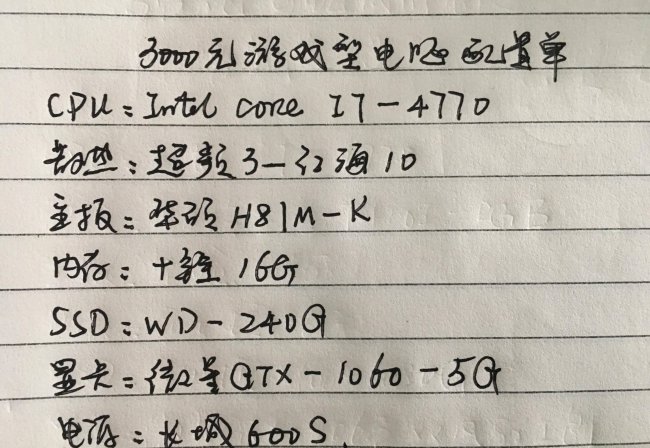 3000元游戏型电脑配置单
CPU：Intel core I7-4770
散热：超频3-红海10
主板：华硕H81M-K
内存：十铨16G
SSD：WD-240G
显卡：微星GTX-1060-5G
电源：长城600S.